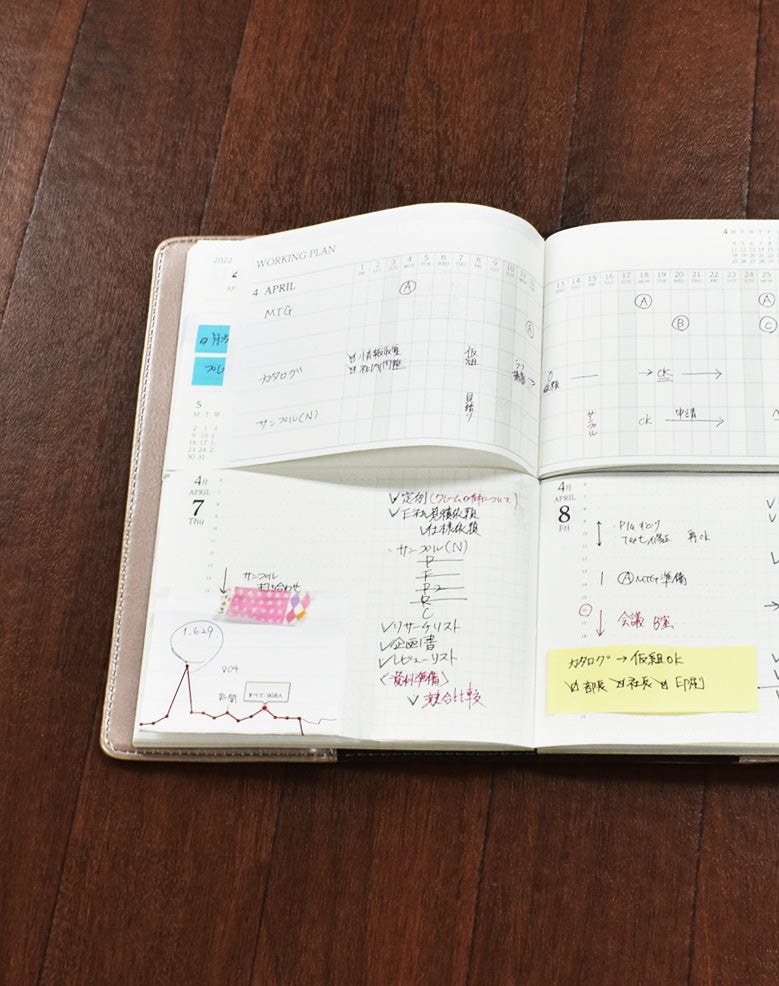 2022
WORKING PLAN
1 2 3 4 5 6 7 8 9 10 11
FRI SAT SUN MON TUE WED THU FRI SAT SUN MON
4 APRIL
A
MTG
A
カタログ
社内調整
仮組
サンプル(N)
見積り
5
M T W
2 3 4
9 10
16 17
23 24 25
30 31
4 M T W T F
13 14 15 16 17 18 19 20 21 22 23 24 25
WED THU FRI SAT SUN MON TUE WED THU FRI SAT SUN MON
A
A
B
C
ok
サンプル
ok 申請
4月
APRIL
7
Thu
サンプル
打ち合わせ
1.629
804
新聞
定例(クレームの件について)
見積依頼
仕様依頼
・サンプル(N)
P
F
P2
R
C
リサーチリスト
企画書
レビューリスト
〈資料準備〉
競合比較
4月
APRIL
8
Fri
再ok
A MTG準備
会議 B室
カタログ→仮組OK
部長 社長 印刷